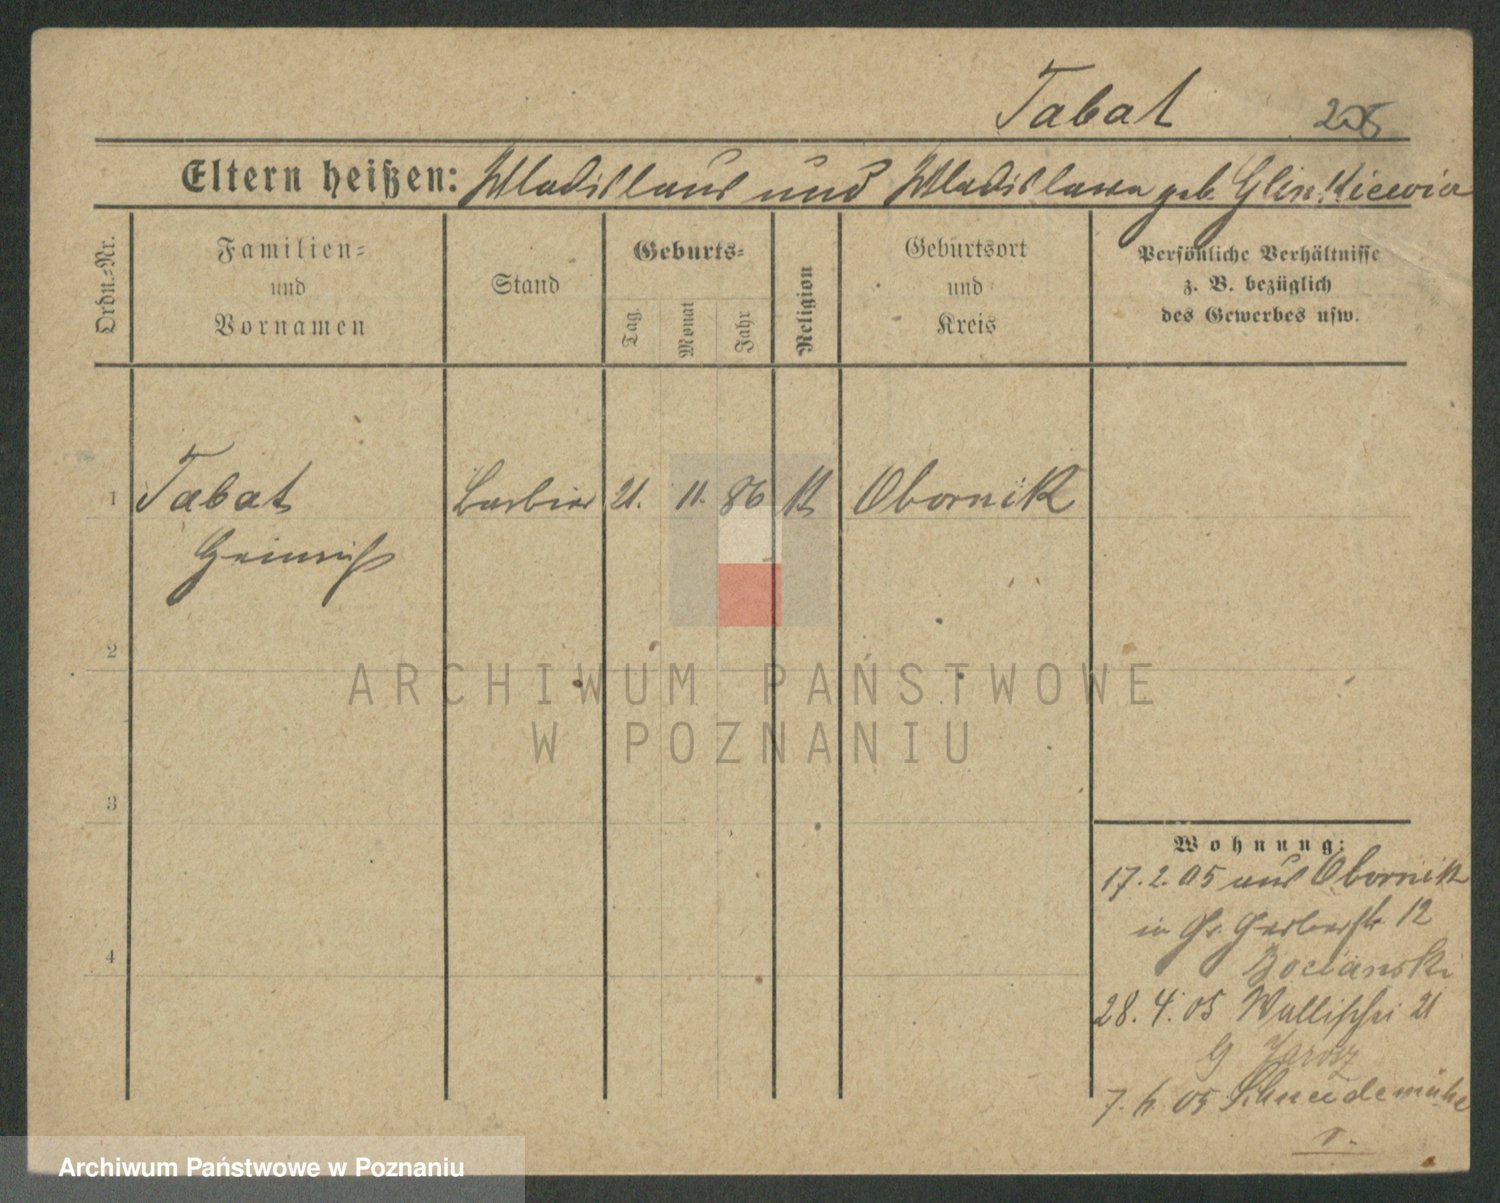 Tabat 205
Eltern heißen: Wladislaus und Wladislawa geb. Glinkiewicz
Ordn.=Nr.
Familien=
und
Vornamen
Stand
Geburts=
Tag.
Monat
Jahr
Religion
Geburtsort
und
Kreis
Persönliche Verhältnisse
z. B. bezüglich
des Gewerbes usw.
1 Tabat Barbier 21. 11. 86 K Obornik
Heinrich
2
3
4
Wohnung:
17.2.05 aus Obornik
in Gr. Gerberstr 12
Bocianski
28.4.05 Wallischei 21
Jarosz
7. 6. 05 Schneidemühl
ARCHIWUM PAŃSTWOWE
W POZNANIU
Archiwum Państwowe w Poznaniu